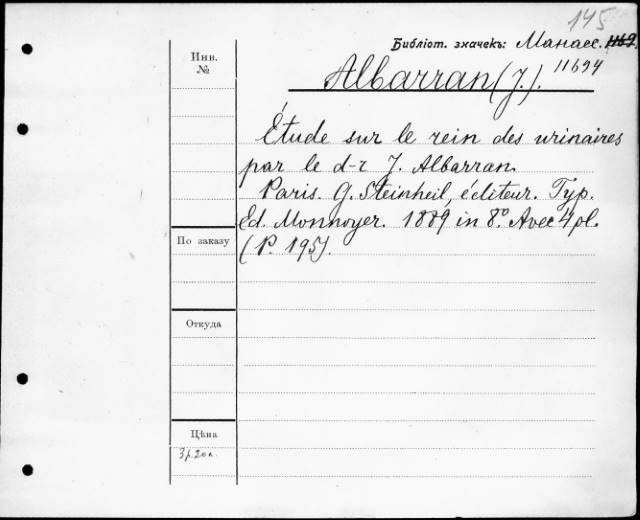 145
Библіот. значекъ: Манасс. 1169
Инв.
№
11694
Albarran (J.).
Étude sur le rein des urinaires
par le d-r J. Albarran.
Paris. G. Steinheil, éditeur. Typ.
Ed. Monnoyer. 1889 in 8º. Avec 4 pl.
(P. 195).
По заказу
Откуда
Цѣна
3 р. 20 к.